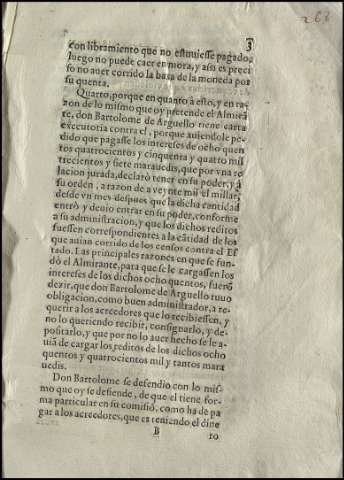 3
con libramiento que no estuuiesse pagado,
luego no puede caer en mora, y assi es preci
so no auer corrido la baxa de la moneda por
su quenta.
Quarto, porque en quanto à esto, y en ra
zon de lo mismo que oy pretende el Almirã
te, don Bartolome de Arguello tiene carta
executoria contra el, porque auiendole pe
dido que pagasse los intereses de ocho quen
tos quatrocientos y cinquenta y quatro mil
trecientos y siete marauedis, que por vna re
lacion jurada, declarò tener en su poder, y à
su orden, a razon de a veynte mil el millar,
desde vn mes despues que la dicha cantidad
entrò y deuio entrar en su poder, conforme
a su administracion, y que los dichos reditos
fuessen correspondientes a la cãtidad de los
que auian corrido de los censos contra el Es
tado. Las principales razones en que se fun-
dò el Almirante, para que se le cargassen los
intereses de los dichos ocho quentos, fuerõ
dezir, que don Bartolome de Arguello tuuo
obligacion, como buen administrador, a re-
querir a los acreedores que lo recibiessen, y
no lo queriendo recibir, consignarlo, y de-
positarlo, y que por no lo auer hecho se le a-
uiã de cargar los reditos de los dichos ocho
quentos y quatrocientos mil y tantos mara
uedis.
Don Bartolome se defendio con lo mis-
mo que oy se defiende, de que el tiene for-
ma particular en su comissiõ, como ha de pa
gar a los acreedores, que es teniendo el dine
B
ro